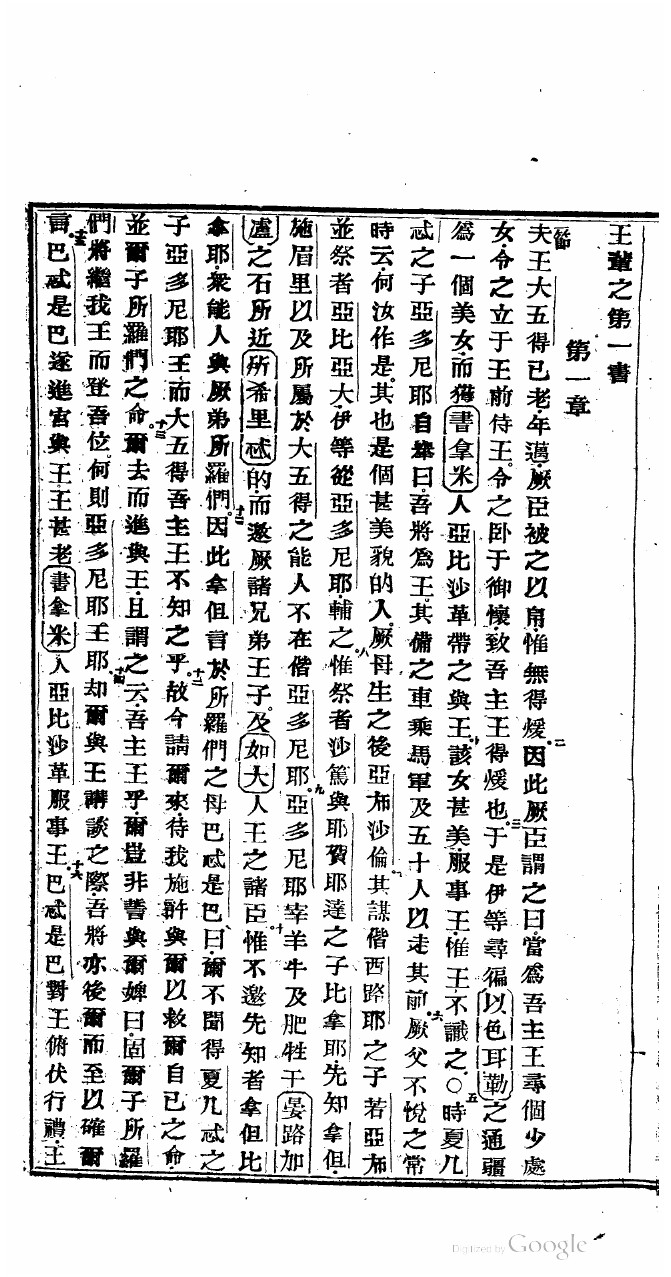 王輩之第一書
第一章
夫王大五得已老年邁厥臣被之以帛惟無得煖二因此厥臣謂之曰當爲吾主王尋個少處
女令之立于王前侍王令之卧于御懷致吾主王得煖也三于是伊等尋徧以色耳勒之通疆
爲一個美女而獲書拿米人亞比沙革帶之與王四該女甚美服事王惟王不識之○五時夏几
忒之子亞多尼耶自舉曰吾將爲王其備之車乘馬軍及五十人以走其前六厥父不悅之常
時云何汝作是其也是個甚美貌的人厥母生之後亞布沙倫七其謀偕西路耶之子若亞布
並祭者亞比亞大伊等從亞多尼耶輔之八惟祭者沙篤與耶賀耶達之子比拿耶先知拿但
施眉里以及所屬於大五得之能人不在偕亞多尼耶九亞多尼耶宰羊牛及肥牲于晏路加
盧之石所近所希里忒的而邀厥諸兄弟王子及如大人王之諸臣十惟不邀先知者拿但比
拿耶衆能人與厥弟所羅們十一因此拿但言於所羅們之母巴忒是巴曰爾不聞得夏几忒之
子亞多尼耶王而大五得吾主王不知之乎十二故今請爾來待我施計與爾以救爾自己之命
並爾子所羅們之命十三爾去而進與王且謂之云吾主王乎爾豈非誓與爾婢曰固爾子所羅
們將繼我王而登吾位何則亞多尼耶王耶十四却爾與王講談之際吾將亦後爾而至以確爾
言十五巴忒是巴遂進宮與王王甚老書拿米人亞比沙革服事王十六巴忒是巴對王俯伏行禮王
Digitized by Google